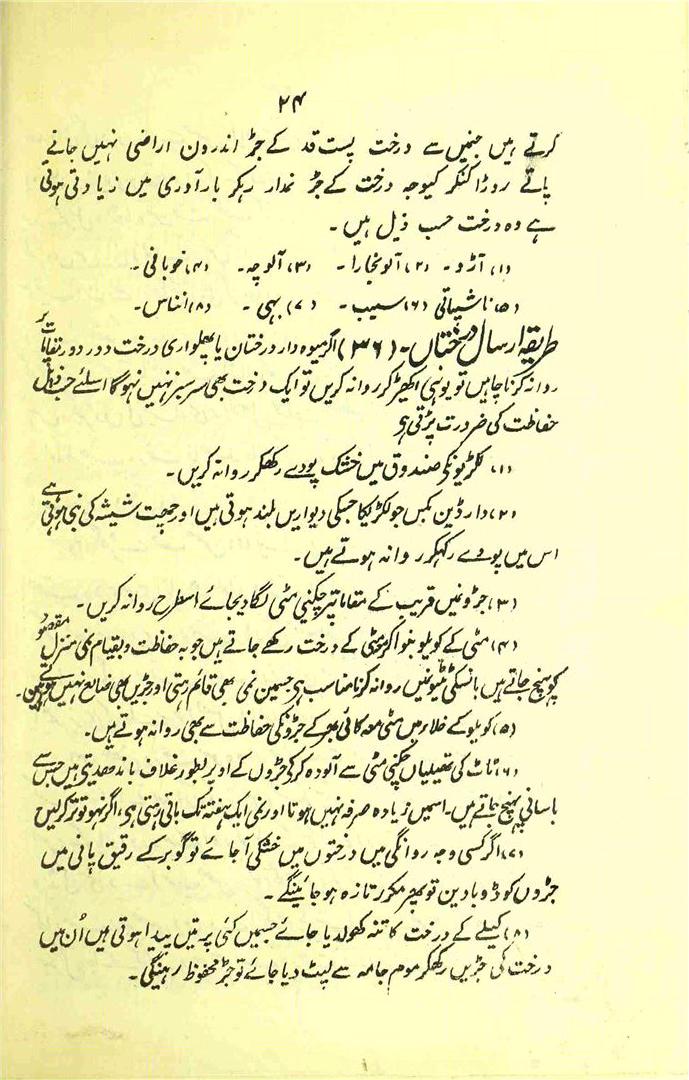 ۲۴
کرتے ہیں جنمیں سے درخت پست قد کے جڑ اندرون اراضی نہیں جانے
پاتے روڑا کنکر کیوجہ درخت کے جڑ نمدار رہکر بارآوری میں زیادتی ہوتی
ہے وہ درخت حسب ذیل ہیں۔
(۱) آڑو۔ (۲) آلو بخارا۔ (۳) آلوچہ۔ (۴) خوبانی۔
(۵) ناشپاتی (۶) سیب۔ (۷) بہی۔ (۸) انناس۔
طریقہ ارسال درختاں۔ (۳۶) اگر میوہ دار درختان یا پھلواری درخت دور دور مقامات پر
روانہ کرنا چاہیں تو یونہی اکھیڑ کر روانہ کریں تو ایک درخت بھی سرسبز نہیں نہوگا اسلئے حسب ذیل
حفاظت کی ضرورت پڑتی ہو
(۱) لکڑیونکی صندوق میں خشک پودے رکھکر روانہ کریں۔
(۲) دارڈین بکس جو لکڑیکا جسکی دیواریں بلند ہوتی ہیں اور چھت شیشہ کی بنی ہوتی ہے
اس میں پودے رکھکر روانہ ہوتے ہیں۔
(۳) جڑونمیں قریب کے مقامات پر چکنی مٹی لگا دیجائے اسطرح روانہ کریں۔
(۴) مٹی کے کویلو بنوا کر مٹی کے درخت رکھے جاتے ہیں جو بہ حفاظت و بقیام نمی منزل مقصود
کو پہنچ جاتے ہیں بانسکی ٹٹیونمیں روانہ کرنا مناسب ہی جسمیں نمی بھی قائم رہتی اور جڑیں بھی ضائع نہیں ہوتیں۔
(۵) کویلو کے خلاء میں مٹی معہ کائی بھر کے جڑونکی حفاظت سے بھی روانہ ہوتے ہیں۔
(۶) ٹاٹ کی تھیلیاں چکنی مٹی سے آلودہ کر کے جڑوں کے اوپر بطور غلاف باندھدیتی ہیں جس سے
باسانی پہنچ جاتے ہیں۔ اسمیں زیادہ صرفہ نہیں ہوتا اور نمی ایک ہفتہ تک باقی رہتی ہی، اگر نہو تو تر کرلیں
(۷) اگر کسی وجہ روانگی میں درختوں میں خشکی آجائے تو گوبر کے رقیق پانی میں
جڑوں کو ڈوبا دین تو پھر مکرر تازہ ہو جائینگے۔
(۸) کیلے کے درخت کا تنہ کھولدیا جائے جسمیں کئی پرتیں پیدا ہوتی ہیں اُن میں
درخت کی جڑیں رکھکر موم جامہ سے لپٹ دیا جائے تو جڑ محفوظ رہینگی۔